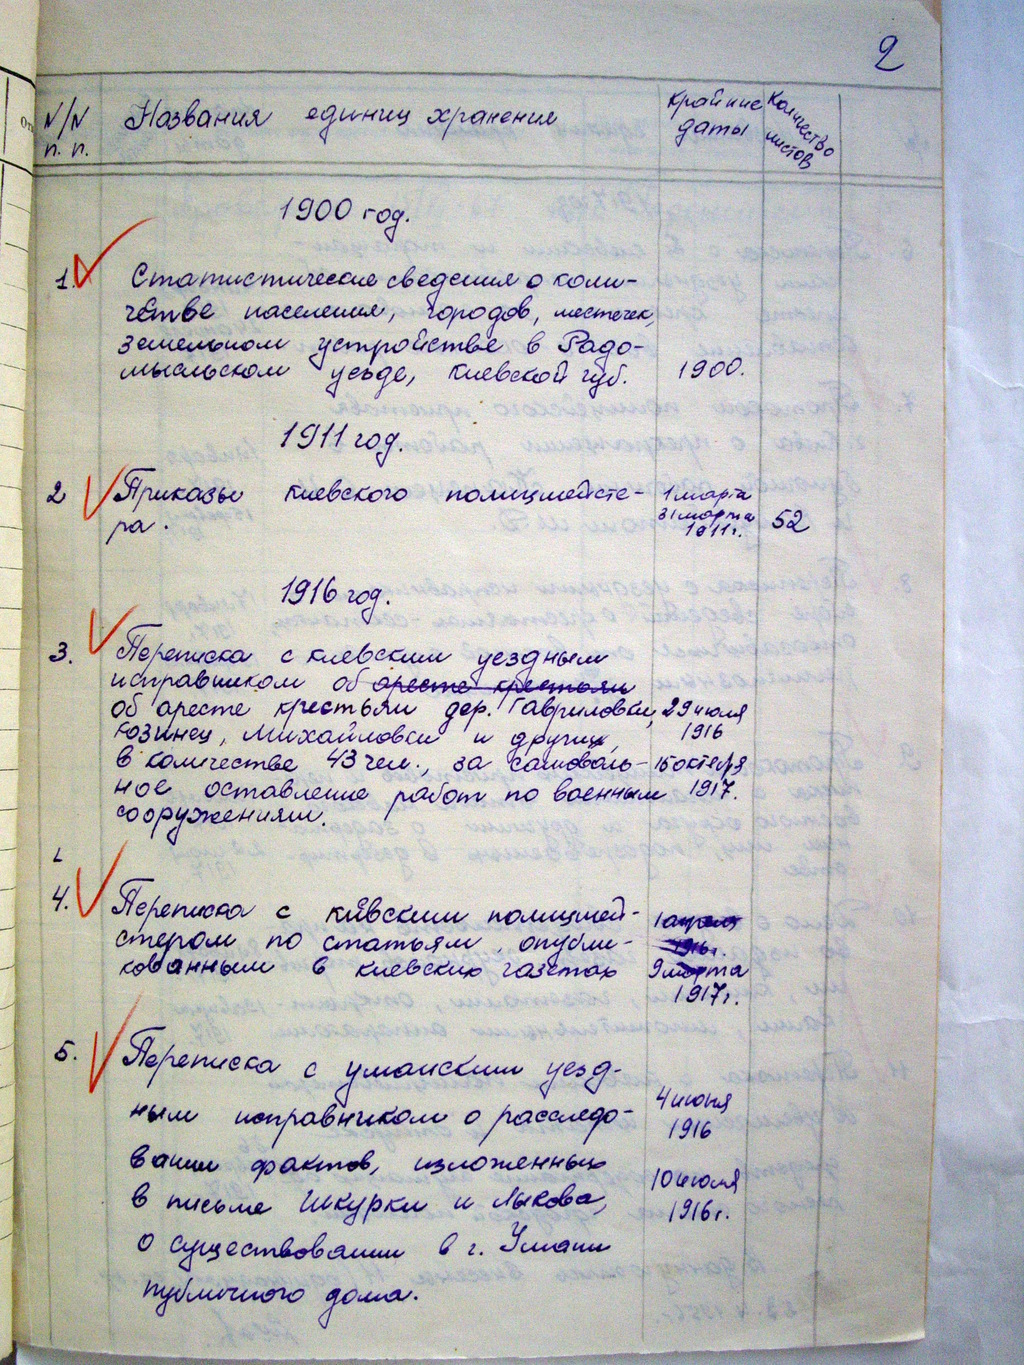 2
N/N п. п.
Названия единиц хранения
Крайние даты
Количество листов
1900 год.
1. Статистические сведения о коли-
честве населения, городов, местечек,
земельном устройстве в Радо-
мысльском уезде, Киевской губ. 1900.
1911 год.
2 Приказы киевского полицмейсте- 1 марта
ра. 31 марта 1911г. 52
1916 год.
3. Переписка с киевским уездным
исправником об аресте крестьян
об аресте крестьян дер. Гавриловки, 29 июля
Юзинец, Михайловки и других, 1916
в количестве 43 чел., за самоволь- 15 октября
ное оставление работ по военным 1917.
сооружениям.
4. Переписка с киевским полицмей- 1 апреля
стером по статьям, опубли- 1916г.
кованным в киевских газетах 9 марта
1917г.
5. Переписка с уманским уезд-
ным исправником о расследо- 4 июня
1916
вании фактов, изложенных
в письме Шкурки и Лыкова, 10 июля
1916г.
о существовании в г. Умани
публичного дома.